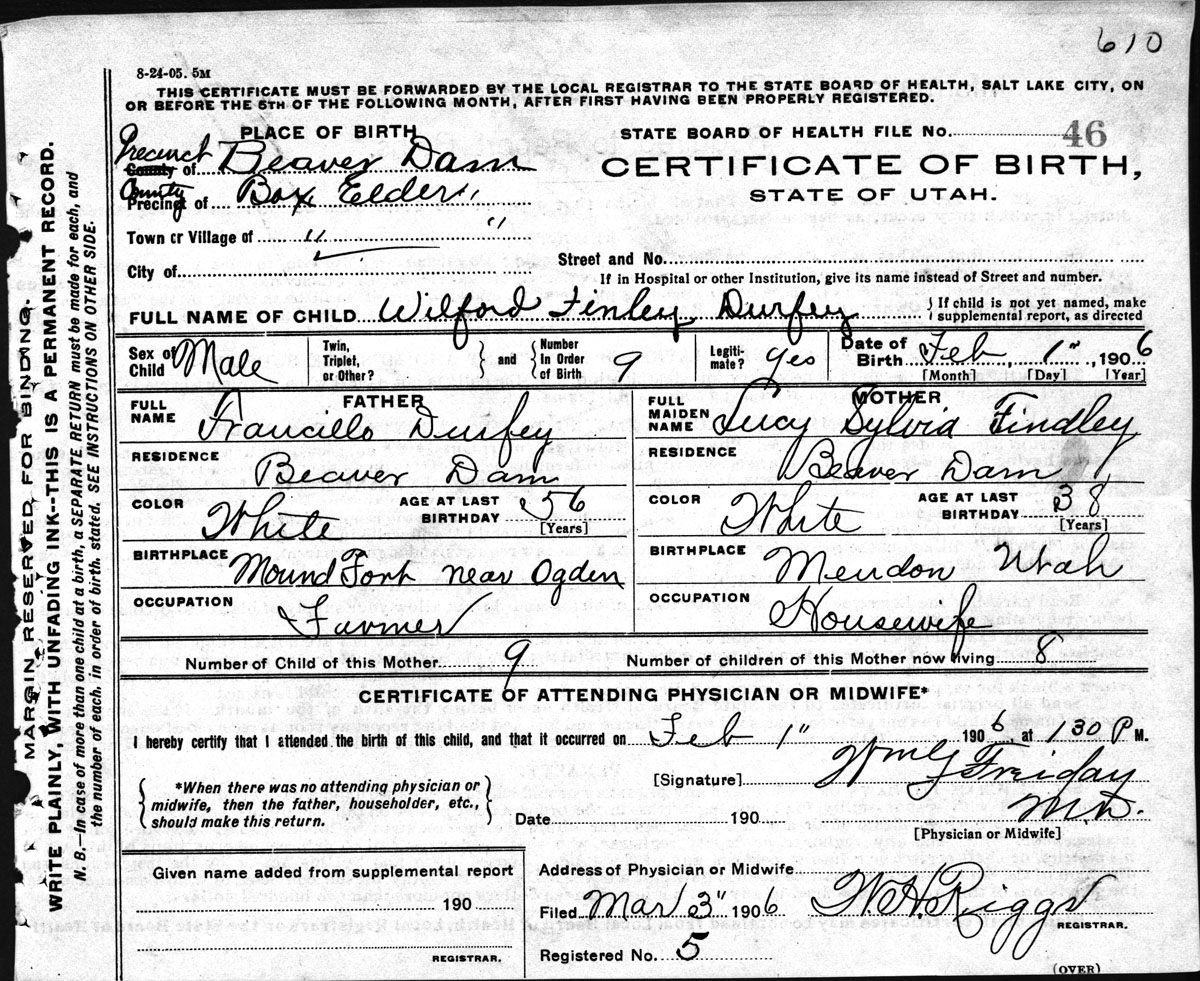 610
8-24-05. 5M
THIS CERTIFICATE MUST BE FORWARDED BY THE LOCAL REGISTRAR TO THE STATE BOARD OF HEALTH, SALT LAKE CITY, ON
OR BEFORE THE 5TH OF THE FOLLOWING MONTH, AFTER FIRST HAVING BEEN PROPERLY REGISTERED.
PLACE OF BIRTH
STATE BOARD OF HEALTH FILE No. 46
Precinct
County of Beaver Dam
CERTIFICATE OF BIRTH,
County
Precinct of Box Elder
STATE OF UTAH.
Town or Village of " "
Street and No.
City of
If in Hospital or other Institution, give its name instead of Street and number.
FULL NAME OF CHILD Wilford Finley Durfey { If child is not yet named, make supplemental report, as directed
Sex of Child Male
Twin, Triplet, or Other? } and { Number In Order of Birth 9
Legiti-mate? yes
Date of Birth Feb 1", 1906
[Month] [Day] [Year]
FATHER
MOTHER
FULL NAME Francillo Durfey
FULL MAIDEN NAME Lucy Sylvia Findley
RESIDENCE Beaver Dam
RESIDENCE Beaver Dam
COLOR White AGE AT LAST BIRTHDAY 56 [Years]
COLOR White AGE AT LAST BIRTHDAY 38 [Years]
BIRTHPLACE Mound Fort near Ogden
BIRTHPLACE Mendon Utah
OCCUPATION Farmer
OCCUPATION Housewife
Number of Child of this Mother 9 Number of children of this Mother now living 8
CERTIFICATE OF ATTENDING PHYSICIAN OR MIDWIFE*
I hereby certify that I attended the birth of this child, and that it occurred on Feb 1" 1906, at 1 30 P M.
*When there was no attending physician or
midwife, then the father, householder, etc.,
should make this return.
[Signature] Wm G Freiday
M.D.
Date 190
[Physician or Midwife]
Given name added from supplemental report
190
REGISTRAR.
Address of Physician or Midwife
Filed Mar 3" 1906 W.H. Riggs
REGISTRAR.
Registered No. 5
(OVER)
MARGIN RESERVED FOR BINDING.
WRITE PLAINLY, WITH UNFADING INK--THIS IS A PERMANENT RECORD.
N. B.—In case of more than one child at a birth, a SEPARATE RETURN must be made for each, and
the number of each, in order of birth, stated. SEE INSTRUCTIONS ON OTHER SIDE.